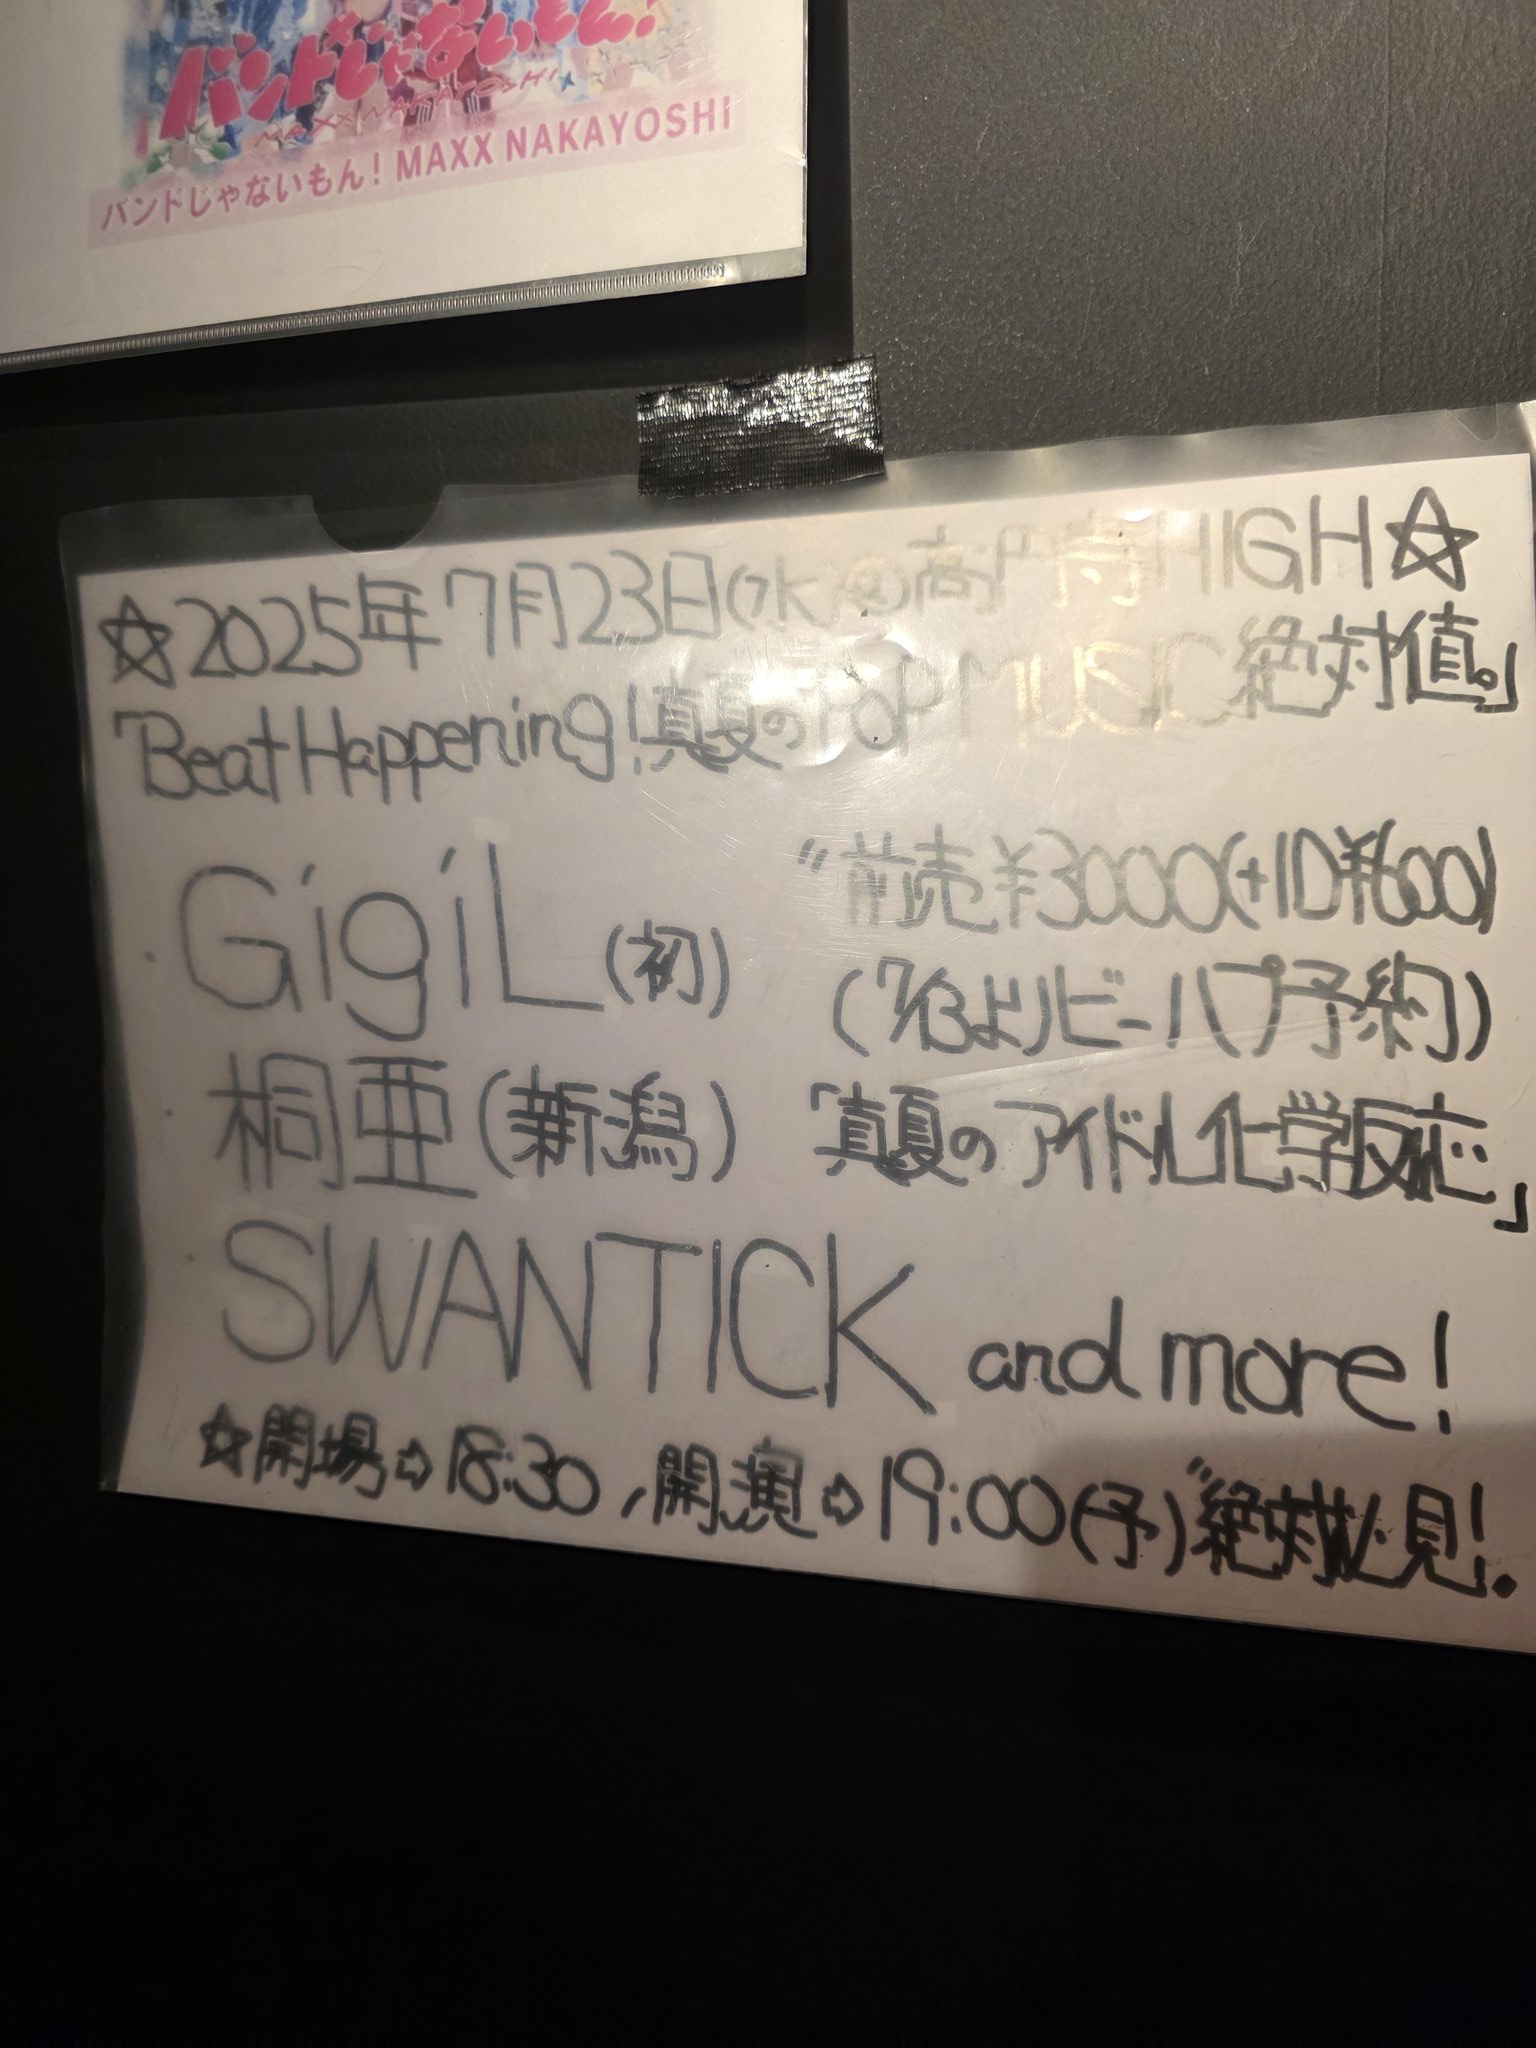 バンドじゃないもん!
MAXX NAKAYOSHI
バンドじゃないもん! MAXX NAKAYOSHI
☆2025年7月23日(水)@高円寺HIGH☆
「Beat Happening!真夏のPOP MUSIC絶対値。」
GigiL(初)
〃前売¥3000(+1D¥600)
(7/13よりビーハプ予約)
桐亜(新潟)
「真夏のアイドル化学反応」
SWANTICK and more!
☆開場⇨18:30、開演⇨19:00(予)〃絶対必見!